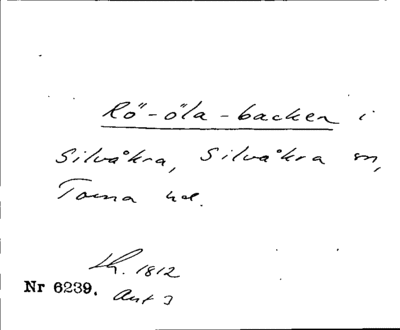 Rö-öla-backen i
Silvåkra, Silvåkra sn,
Torna hd.
Lh. 1812
Nr 6239. Ant 3